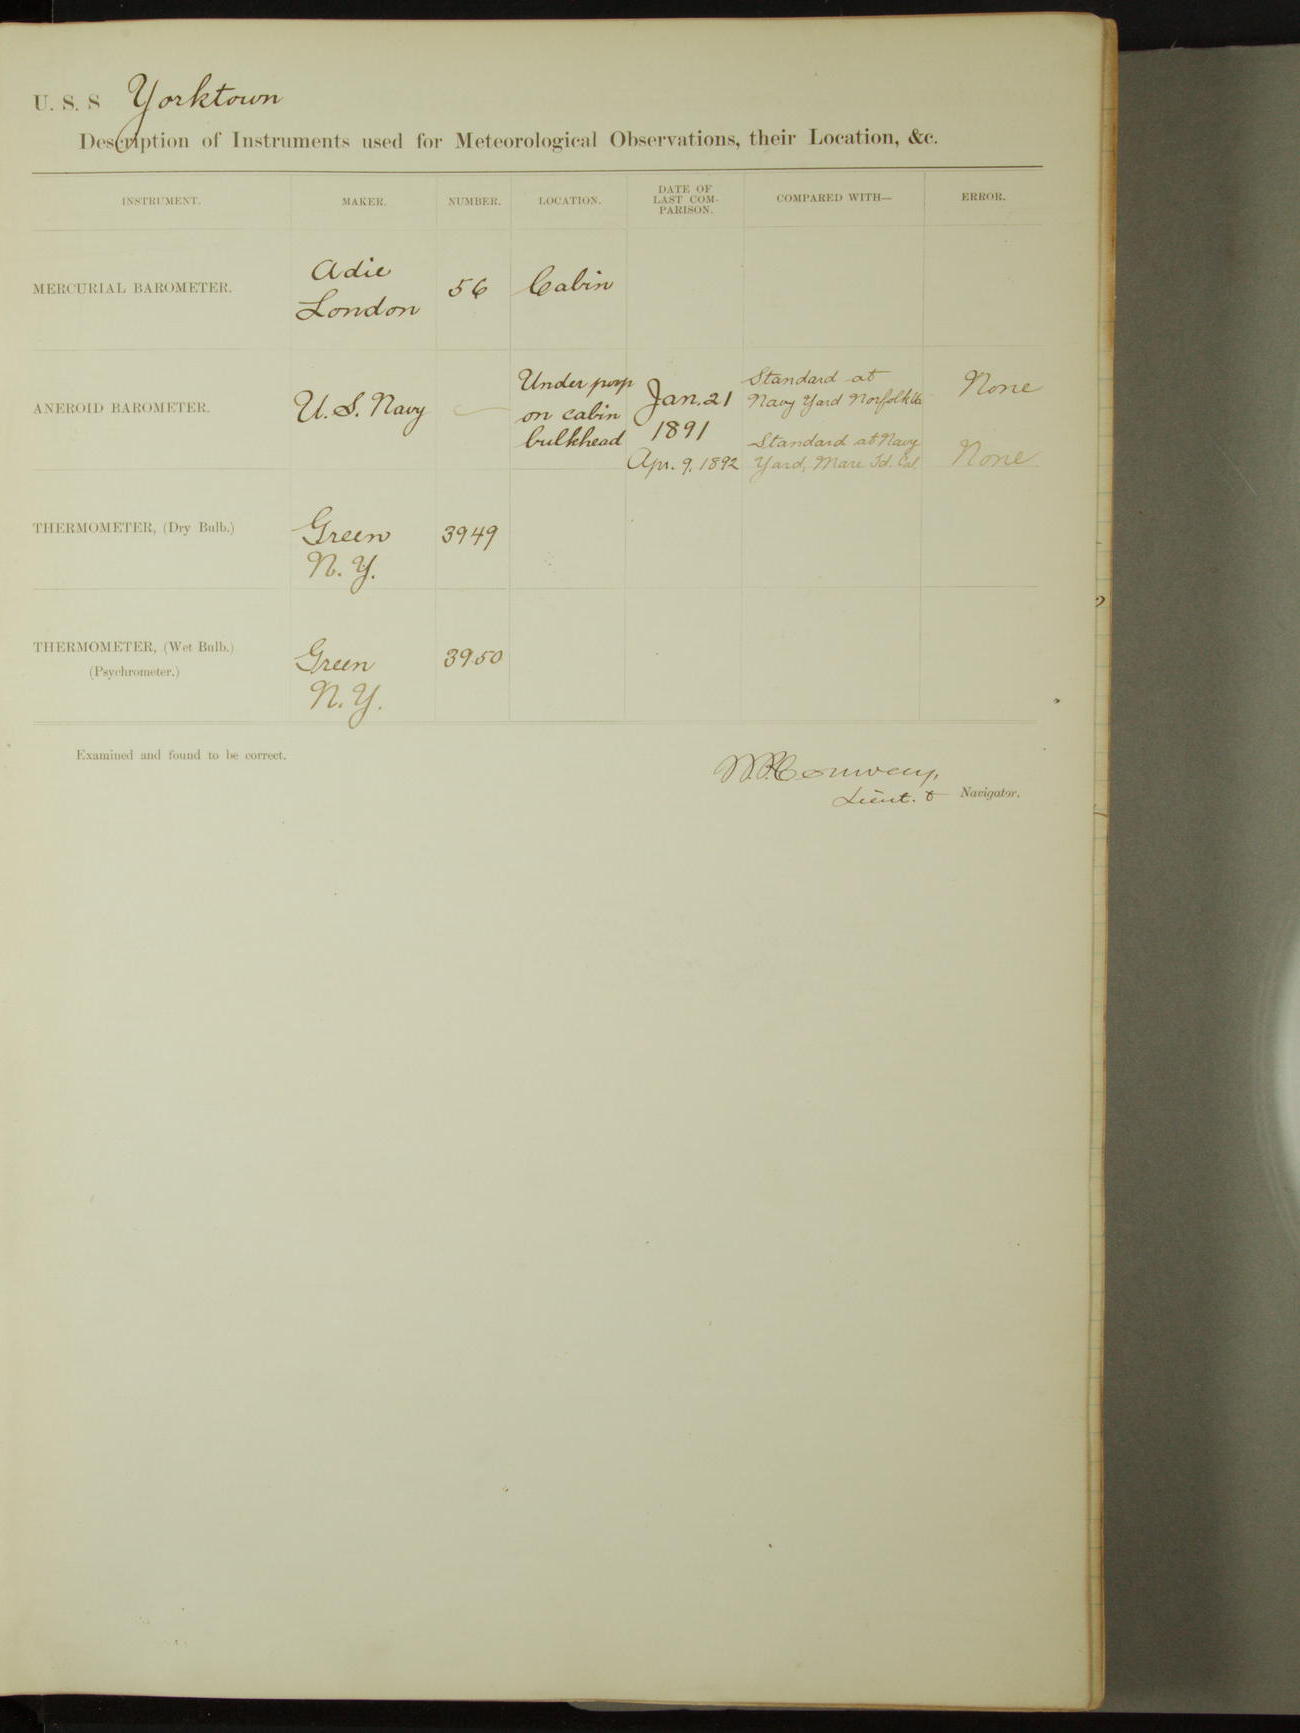 U. S. S Yorktown
Description of Instruments used for Meteorological Observations, their Location, &c.
INSTRUMENT. MAKER. NUMBER. LOCATION. DATE OF LAST COM-PARISON. COMPARED WITH— ERROR.
MERCURIAL BAROMETER. Adie London 56 Cabin
ANEROID BAROMETER. U. S. Navy — Under poop on cabin bulkhead Jan. 21 1891 Standard at Navy Yard Norfolk Va None
Apr. 9, 1892 Standard at Navy Yard, Mare Id. Cal. None
THERMOMETER, (Dry Bulb.) Green N. Y. 3949
THERMOMETER, (Wet Bulb.) (Psychrometer.) Green N. Y. 3950
Examined and found to be correct.
Conway,
Lieut. & Navigator.